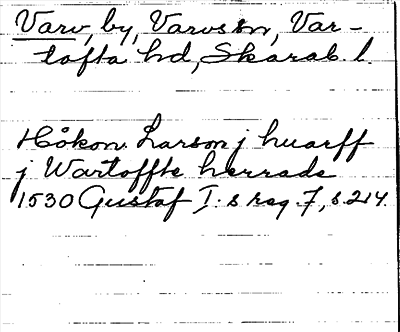 Varv, by, Varvs sn, Var-
tofta hd, Skarab. l.
Håkon Larson j huarff
j Wartoffte herrade
1530 Gustaf I:s reg. 7, s. 214.